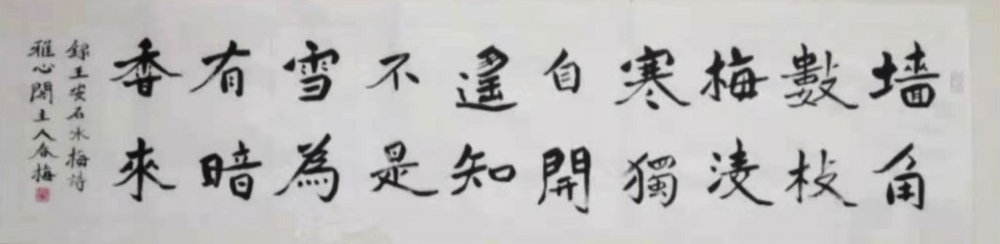 墙角
數枝
梅淩
寒獨
自開
遙知
不是
雪為
有暗
香來
錄王安石咏梅詩
雅心閣主人春梅